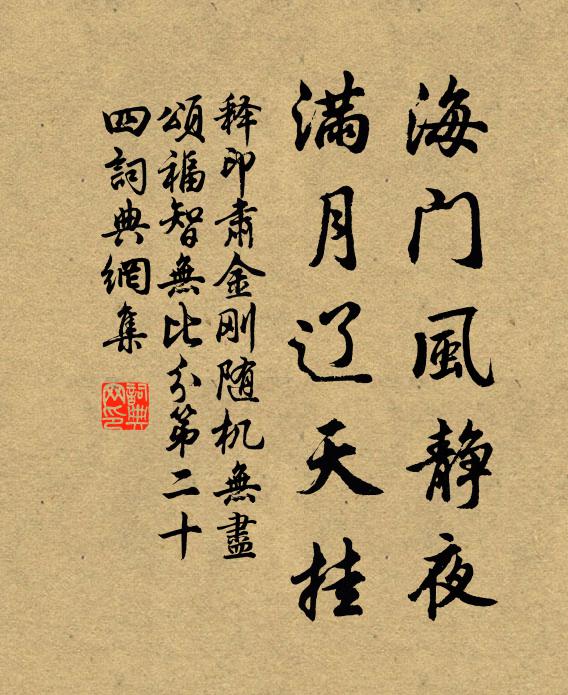 海门風静夜
滿月辽天挂
释印肃金刚随机無盡
頌福智無比分第二十
四詞典網集
詞典
网印